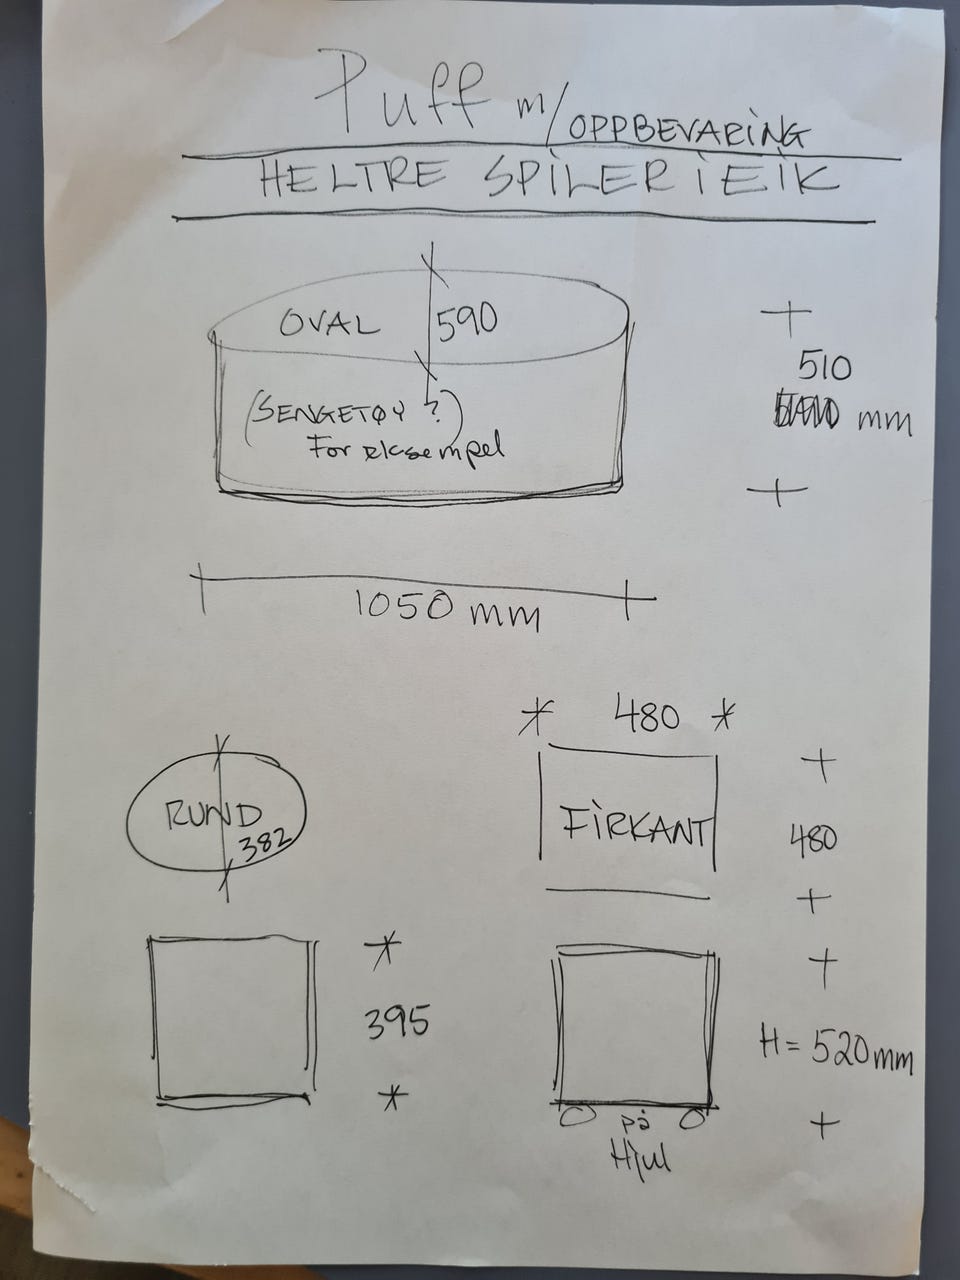 Puff m/OPPBEVARING
HELTRE SPILER I EIK
OVAL 590
(SENGETØY?)
For eksempel
510
mm
1050 mm
RUND
382
395
480
FIRKANT
480
H = 520 mm
på
Hjul